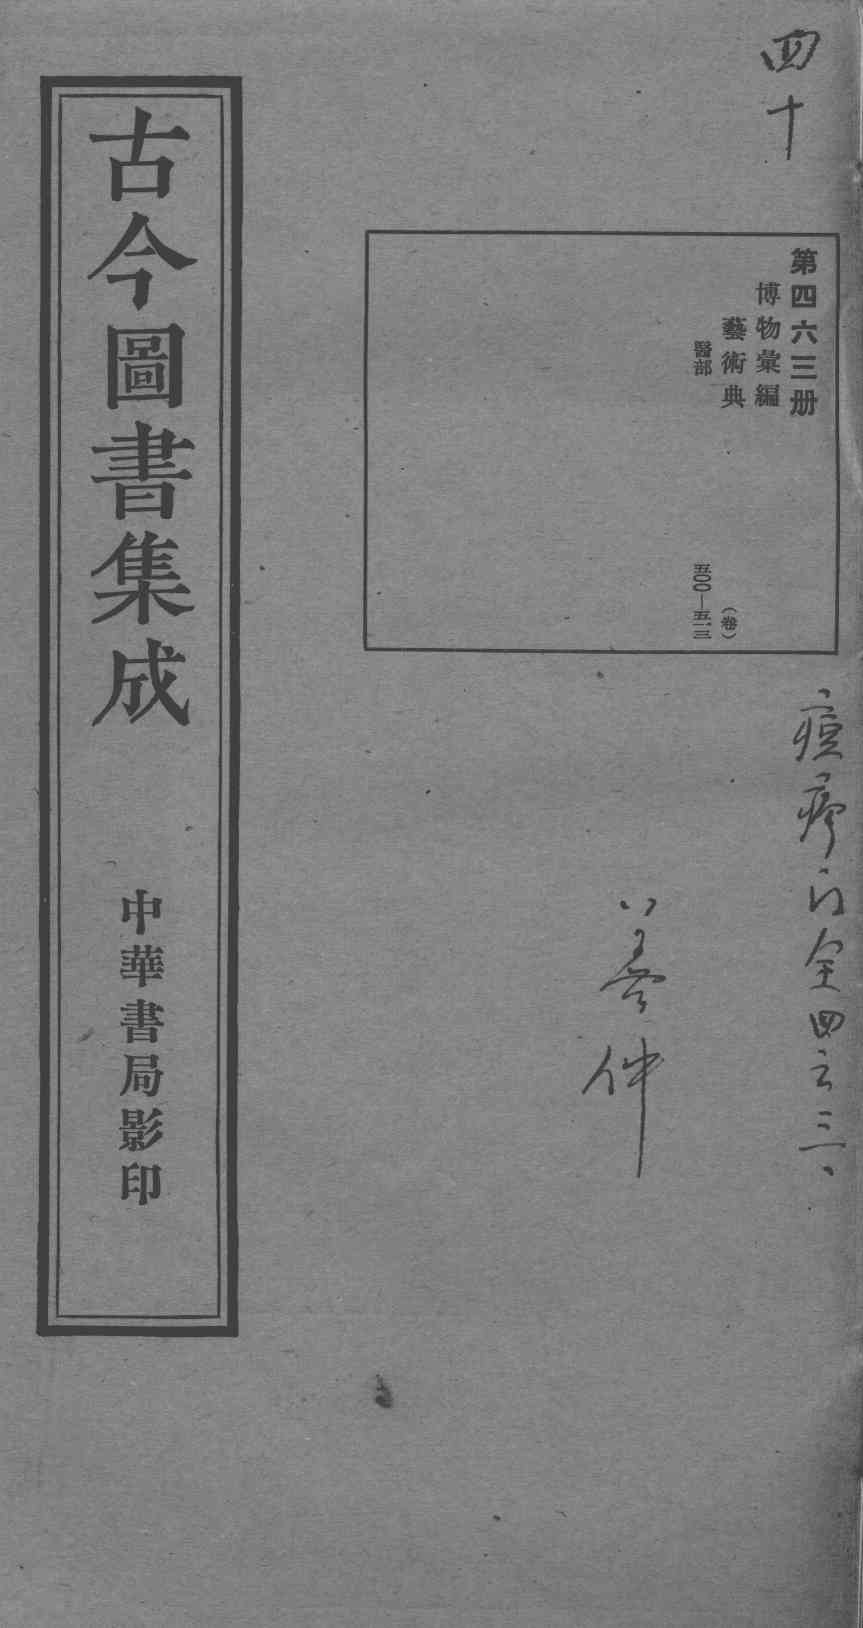 四十
第四六三册
博物彙編
藝術典
醫部
(卷)
五〇〇—五一三
痘疹
全四
古今圖書集成
中華書局影印